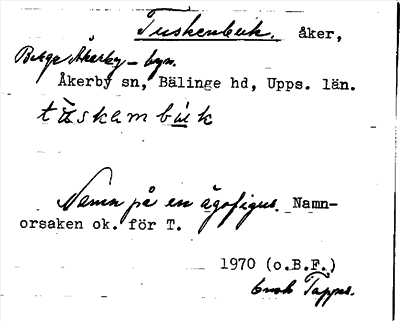 Tuskenbuk. åker,
Berga Åkerby-byn.
Åkerby sn, Bälinge hd, Upps. län.
tùskambúk
Namn på en ägofigur. Namn-
orsaken ok. för T.
1970 (o.B.F.)